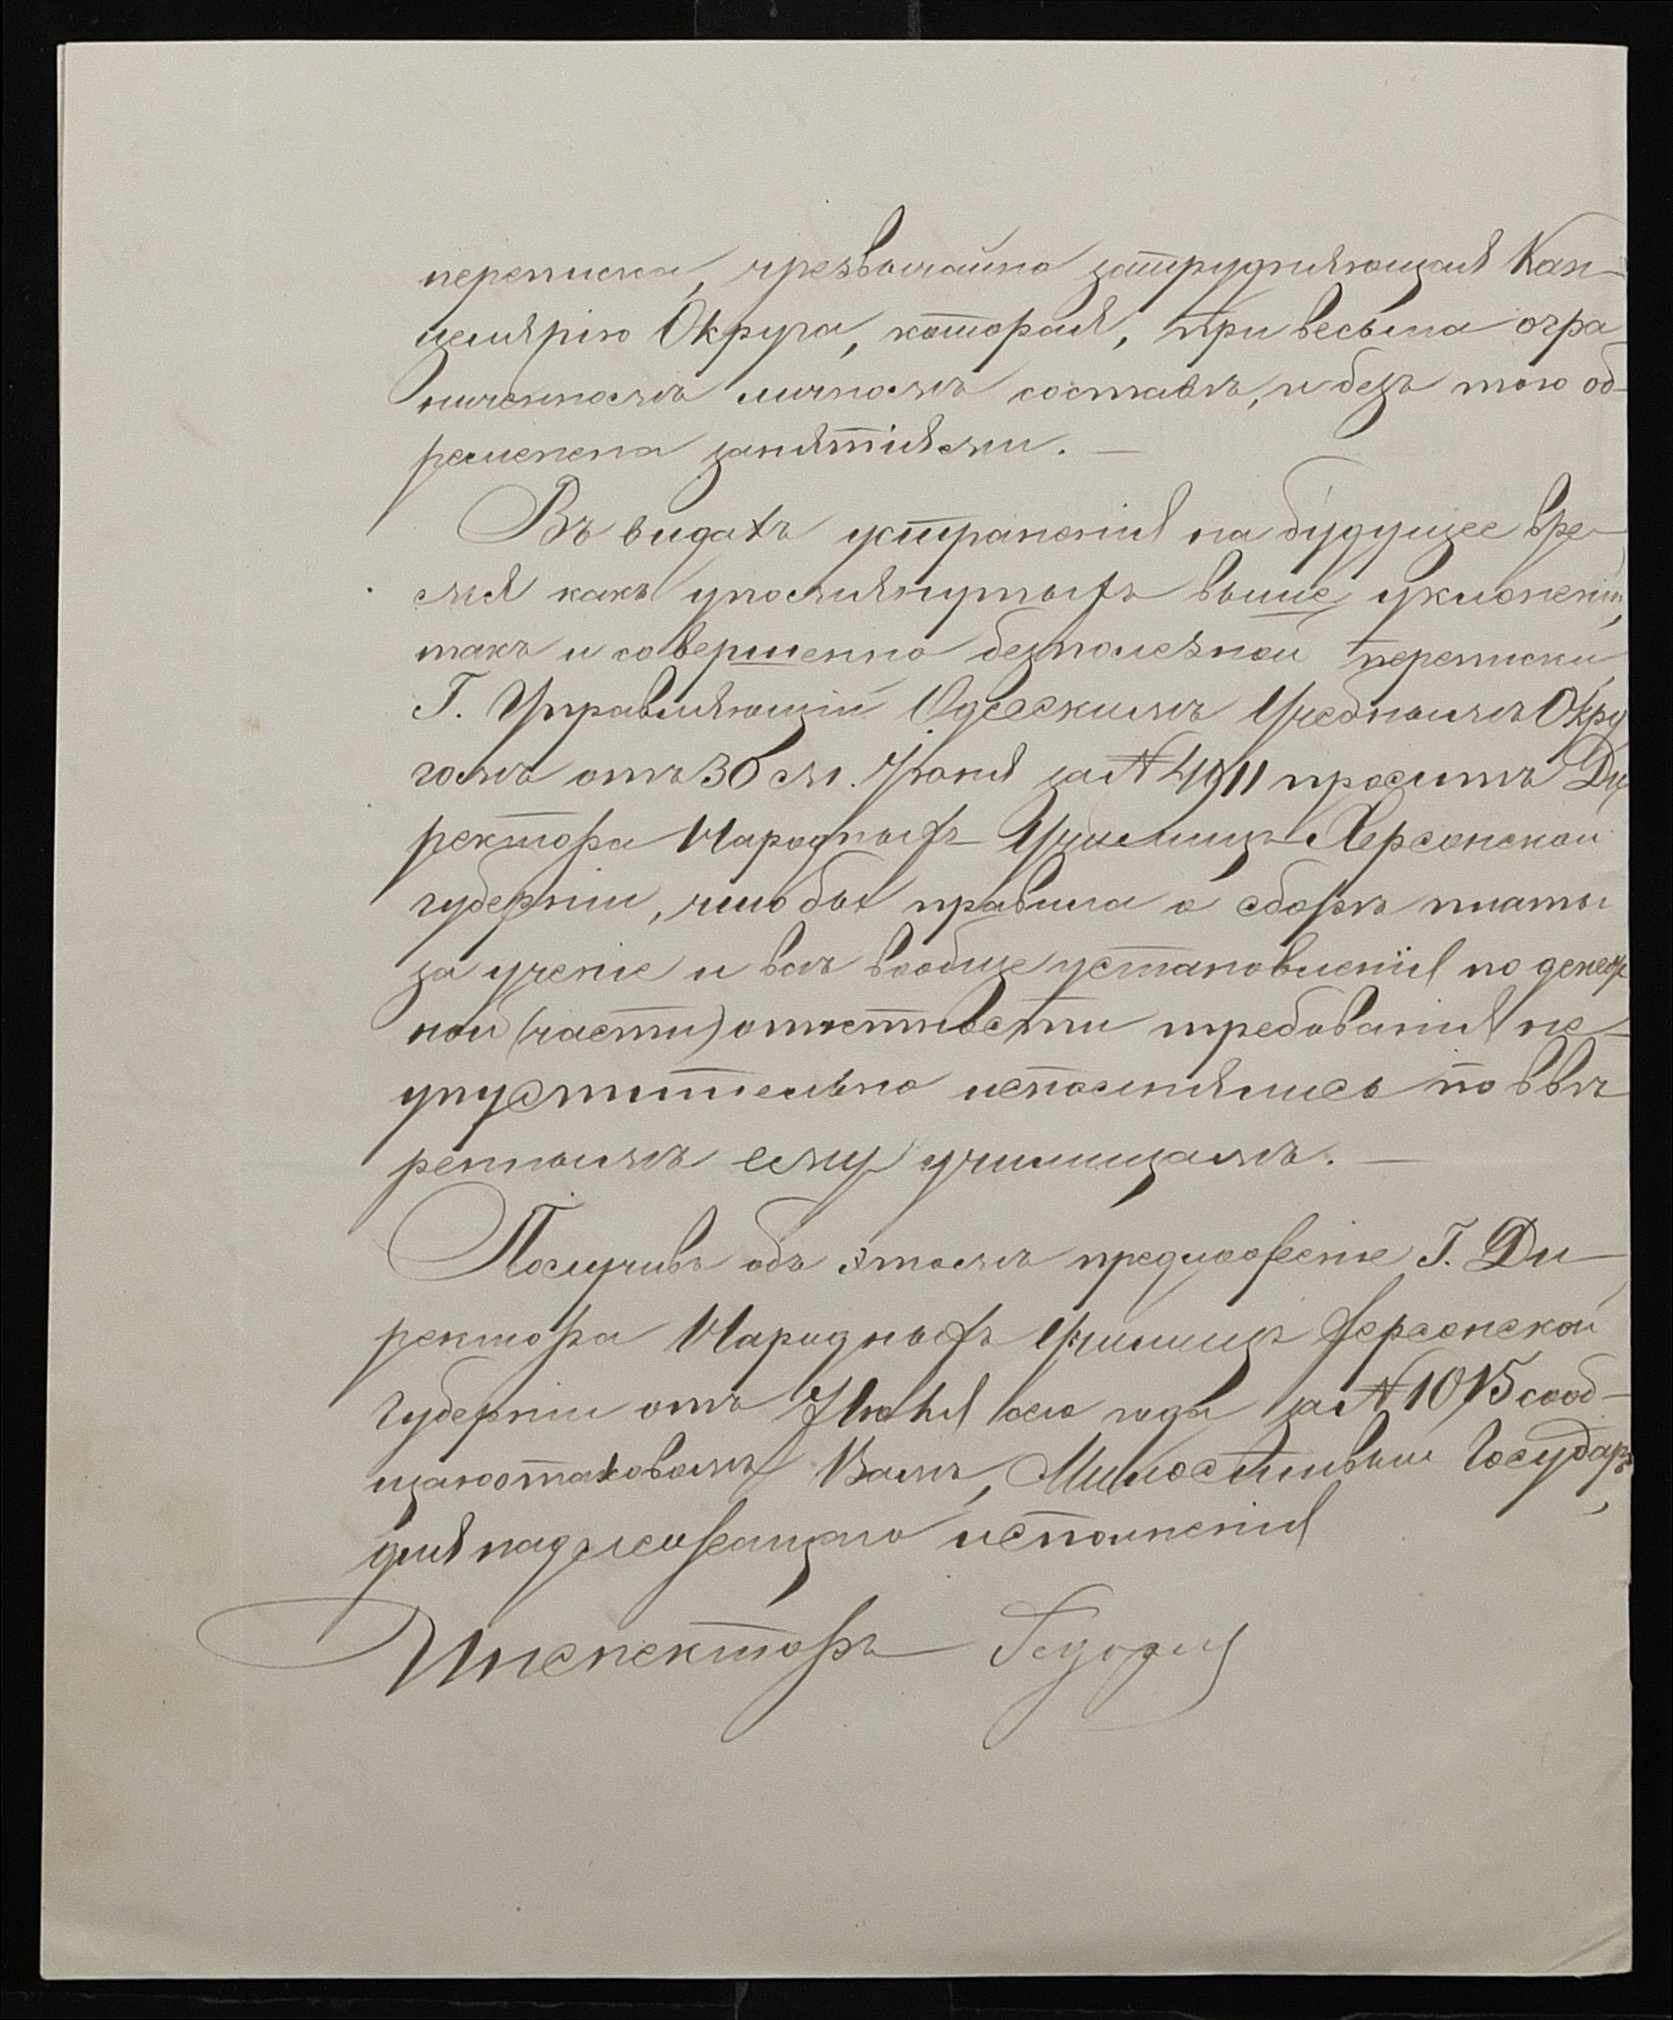 переписка, чрезвычайно затрудняющая Кан-
целярію Округа, которая, при весьма огра-
ниченномъ личномъ составѣ, и безъ того об-
ременена занятіями. —
Въ видахъ устраненія на будущее вре-
мя какъ упомянутыхъ выше уклоненій,
такъ и совершенно безполезной переписки,
Г. Управляющій Одесскимъ Учебнымъ Окру-
гомъ отъ 30 м. Іюня за № 4911 проситъ Ди-
ректора Народныхъ Училищъ Херсонской
губерніи, чтобы правила о сборѣ платы
за ученіе и всѣ вообще установленія по денеж
ной (части) отчетности требованія не-
упустительно исполнялись по ввѣ
реннымъ ему училищамъ. —
Получивъ объ этомъ предложеніе Г. Ди-
ректора Народныхъ Училищъ Херсонской
губерніи отъ Іюня сего года за № 1015 сооб-
щаю о таковомъ Вамъ, Милостивый Государь,
для надлежащаго исполненія
Инспекторъ